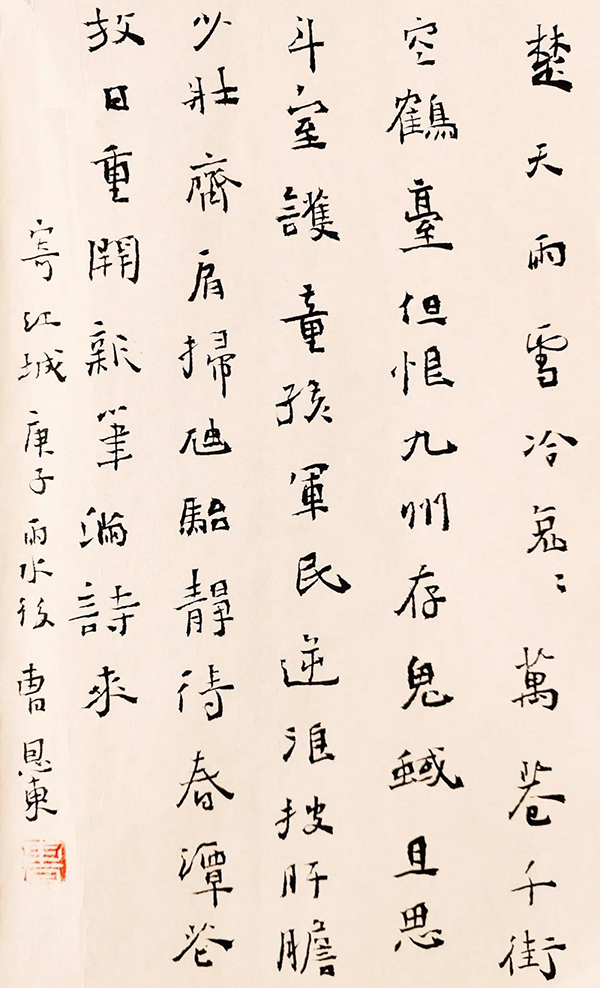 楚天雨雪冷哀〻萬巷千街
空鶴臺但恨九州存鬼蜮且思
斗室護童孩軍民逆披肝膽
少壯齊肩掃駘靜待春潭花
放日重開新筆滿詩來
寄江城 庚子雨水後 曹恩東